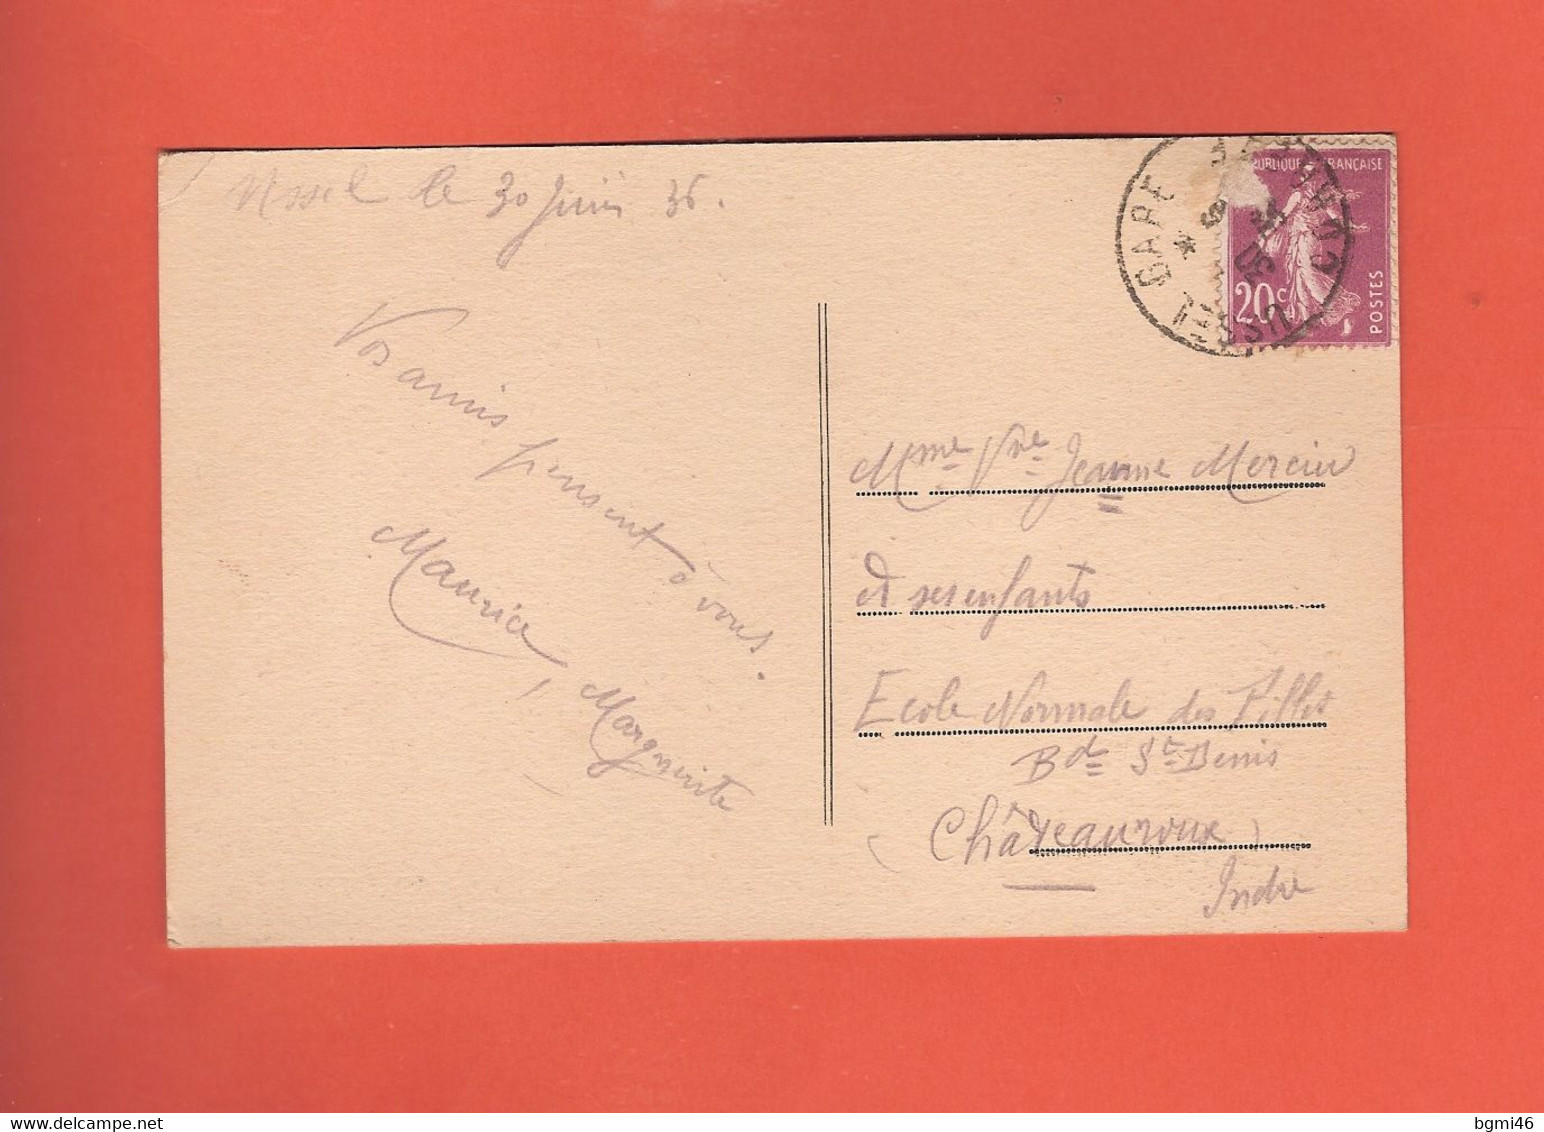 Ussel le 30 Juin 36.
Vos amis pensent à vous.
Maurice, Marguerite
USSEL GARE
RÉPUBLIQUE FRANÇAISE
20c
POSTES
Mme Vve Jeanne Mercier
et ses enfants
Ecole Normale des Filles
Bd St Denis
(Châteauroux)
Indre
bgmi46